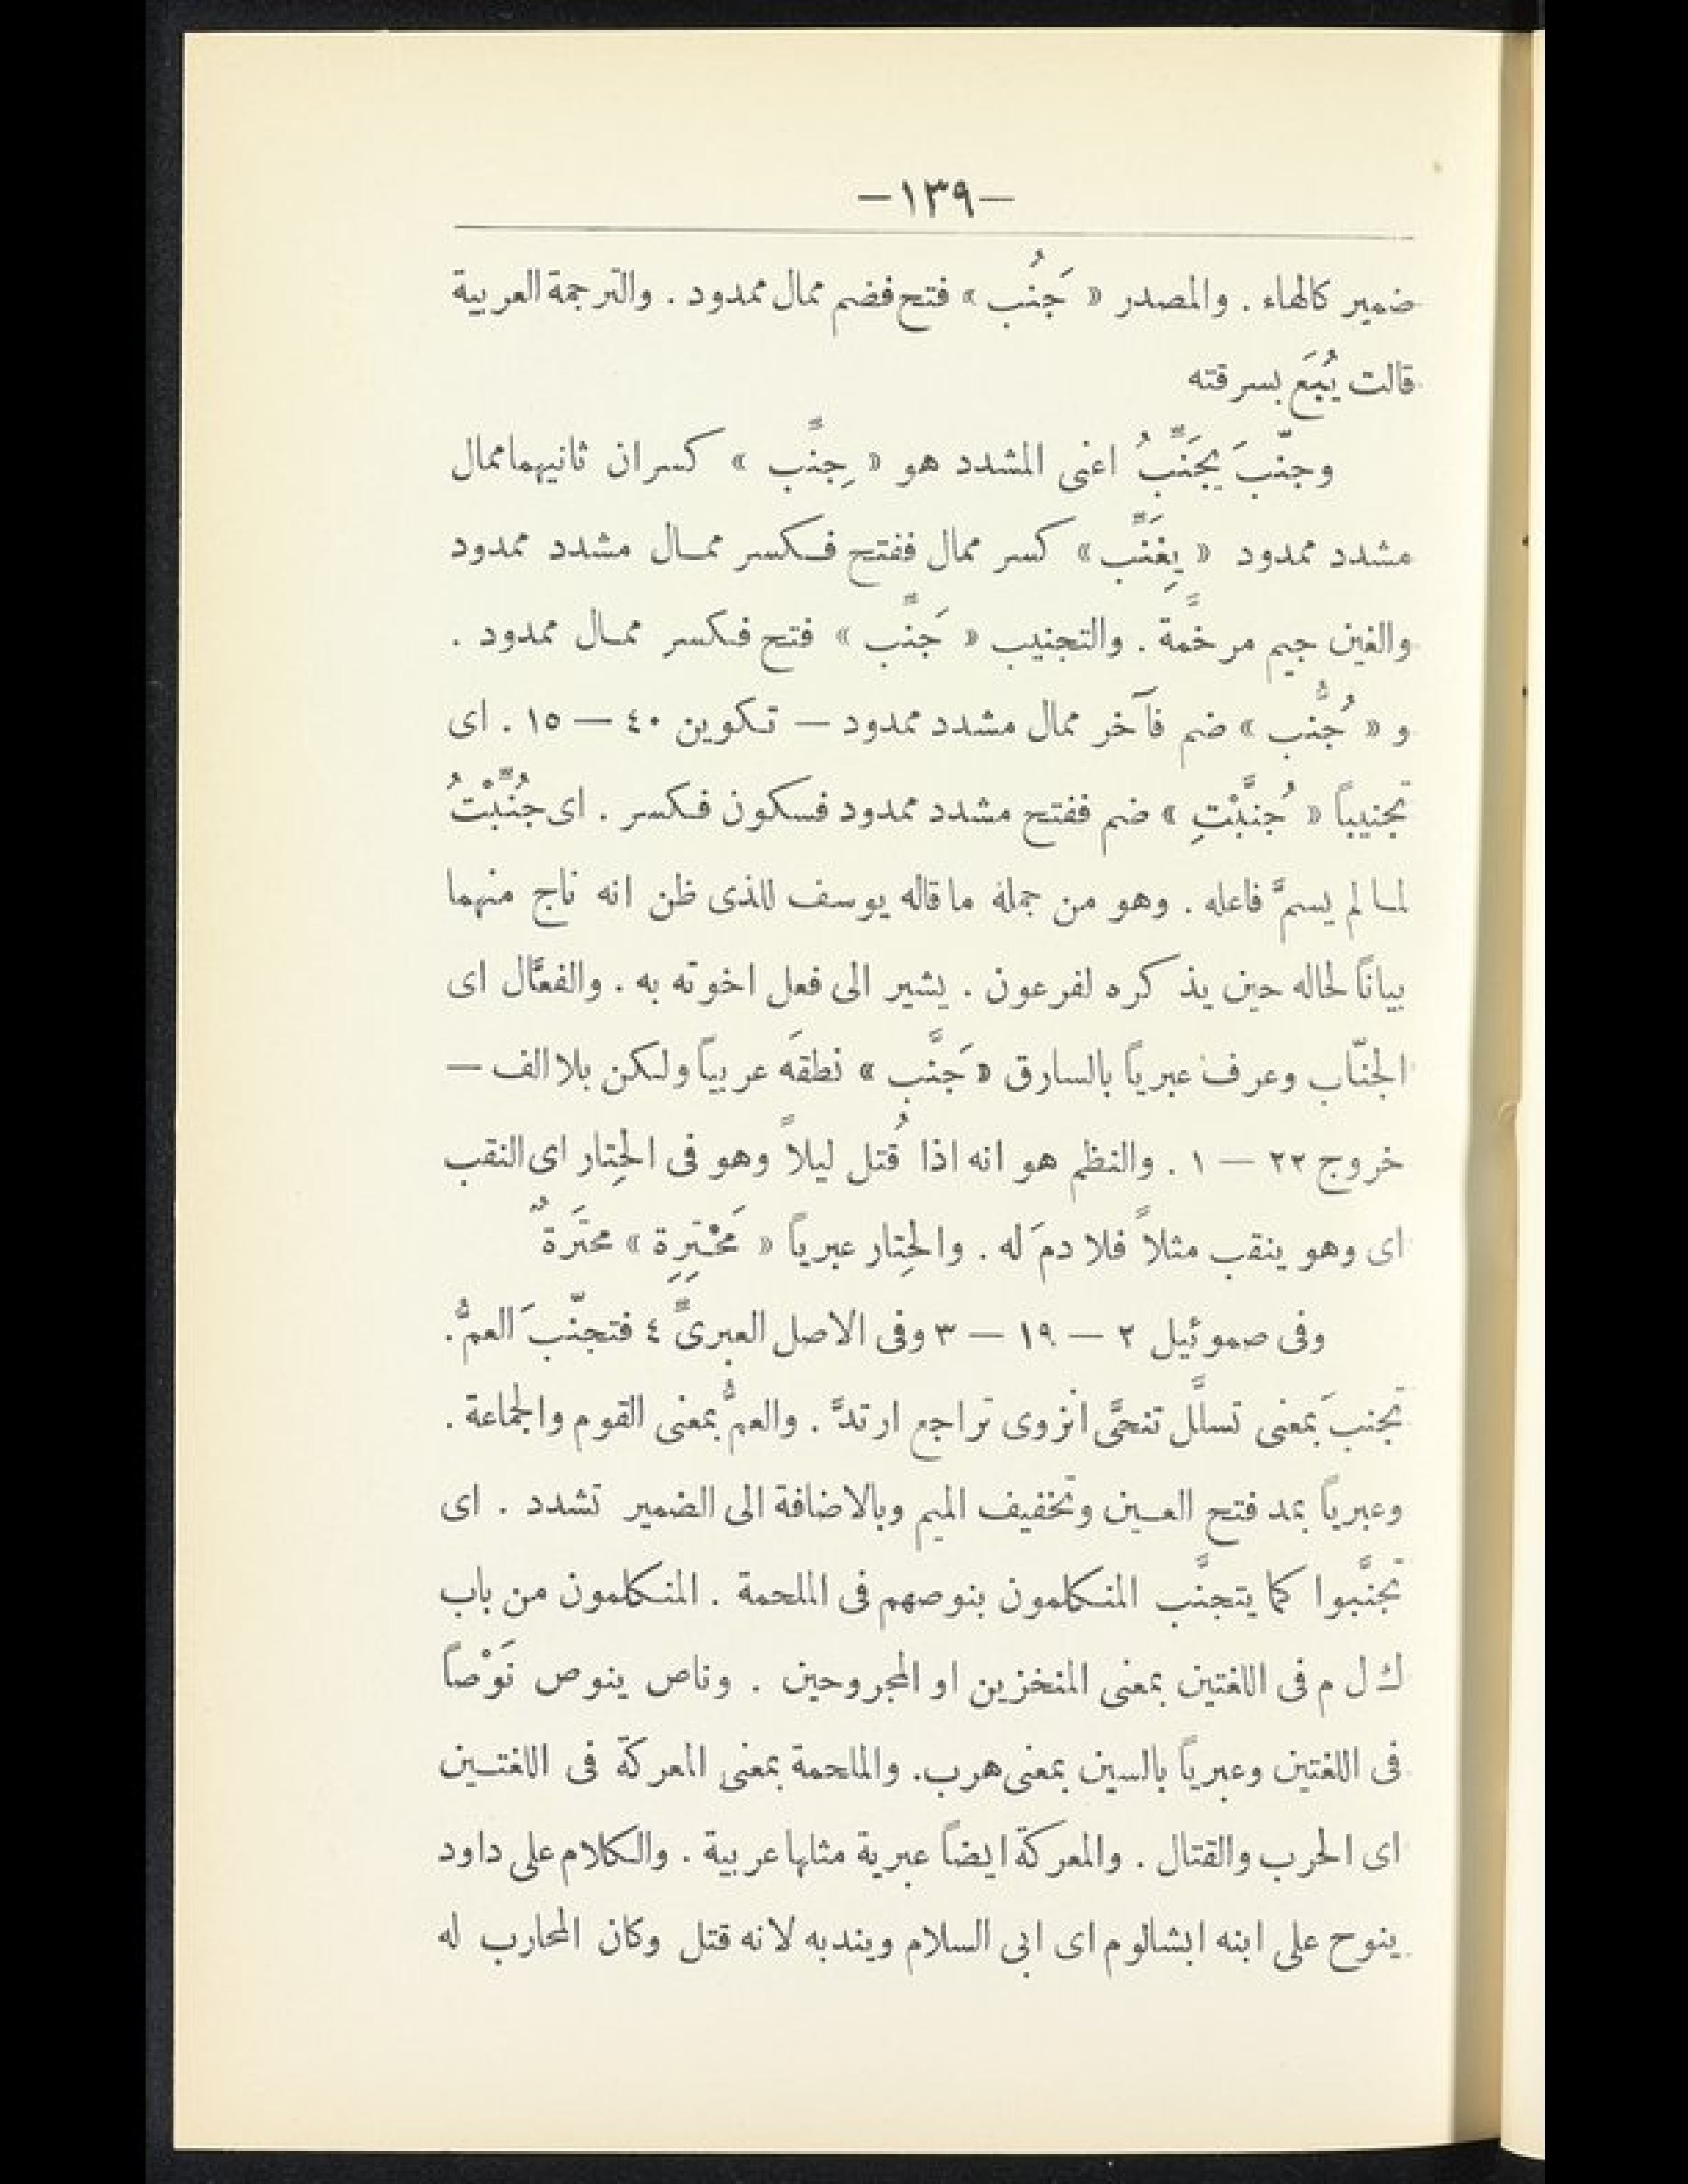 —١٣٩—
ضمير كالهاء . والمصدر « جَنُب » فتح فضم ممال ممدود . والترجمة العربية
قالت يُبَع بسرقته
وجنّبَ يجَنِّبُ اعنى المشدد هو « جِنّب » كسران ثانيهما ممال
مشدد ممدود « يِغَنّب » كسر ممال ففتح فكسر ممال مشدد ممدود
والغين جيم مرخمَّة . والتجنيب « جَنّب » فتح فكسر ممال ممدود .
و « جُنُّب » ضم فآخر ممال مشدد ممدود — تكوين ٤٠ — ١٥ . اى
تجنيباً « جُنَّبْتِ » ضم ففتح مشدد ممدود فسكون فكسر . اى جُنِّبْتُ
لما لم يسمَّ فاعله . وهو من جملة ما قاله يوسف للذى ظن انه ناج منهما
بياناً لحاله حين يذكره لفرعون . يشير الى فعل اخوته به . والفعَّال اى
الجنّاب وعرف عبرياً بالسارق « جَنَّب » نطقَه عربياً ولكن بلا الف —
خروج ٢٢ — ١ . والنظم هو انه اذا قُتل ليلاً وهو فى الحِتار اى النقب
اى وهو ينقب مثلاً فلا دمَ له . والحِتار عبرياً « مَحْتِرِة » محتَرةٌ
وفى صموئيل ٢ — ١٩ — ٣ وفى الاصل العبرىّ ٤ فتجنّبَ العمُّ .
تجنبَ بمعنى تسلَّل تنحَّى انزوى تراجع ارتدَّ . والعمُّ بمعنى القوم والجماعة .
وعبرياً بمد فتح العين وتخفيف الميم وبالاضافة الى الضمير تشدد . اى
تجنَّبوا كما يتجنَّب المنكلمون بنوصهم فى الملحمة . المنكلمون من باب
ك ل م فى اللغتين بمعنى المنخزين او المجروحين . وناص ينوص نَوْصاً
فى اللغتين وعبرياً بالسين بمعنى هرب . والملحمة بمعنى المعركة فى اللغتين
اى الحرب والقتال . والمعركة ايضاً عبرية مثلها عربية . والكلام على داود
ينوح على ابنه ابشالوم اى ابى السلام ويندبه لانه قتل وكان المحارب له